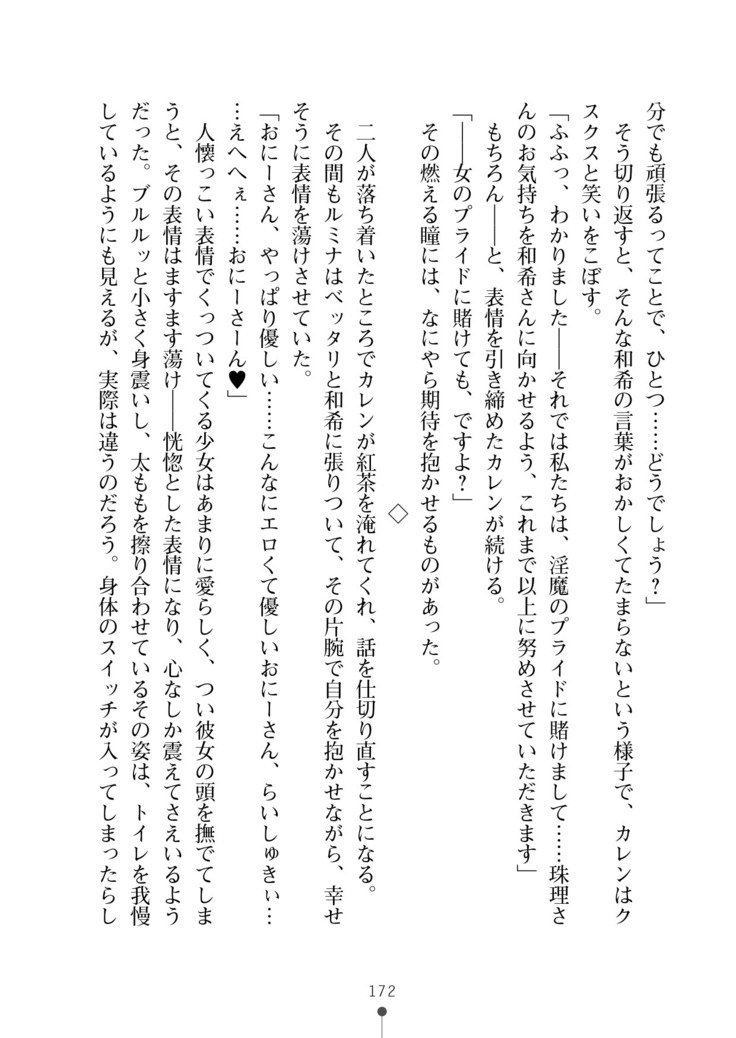 分でも頑張るってことで、ひとつ……どうでしょう？」
　そう切り返すと、そんな和希の言葉がおかしくてたまらないという様子で、カレンはク
スクスと笑いをこぼす。
「ふふっ、わかりました――それでは私たちは、淫魔のプライドに賭けまして……珠理さ
んのお気持ちを和希さんに向かせるよう、これまで以上に努めさせていただきます」
　もちろん――と、表情を引き締めたカレンが続ける。
「――女のプライドに賭けても、ですよ？」
　その燃える瞳には、なにやら期待を抱かせるものがあった。
◇
　二人が落ち着いたところでカレンが紅茶を淹れてくれ、話を仕切り直すことになる。
　その間もルミナはベッタリと和希に張りついて、その片腕で自分を抱かせながら、幸せ
そうに表情を蕩けさせていた。
「おにーさん、やっぱり優しい……こんなにエロくて優しいおにーさん、らいしゅきぃ…
…えへへぇ……おにーさーん♥」
　人懐っこい表情でくっついてくる少女はあまりに愛らしく、つい彼女の頭を撫でてしま
うと、その表情はますます蕩け――恍惚とした表情になり、心なしか震えてさえいるよう
だった。ブルルッと小さく身震いし、太ももを擦り合わせているその姿は、トイレを我慢
しているようにも見えるが、実際は違うのだろう。身体のスイッチが入ってしまったらし
172